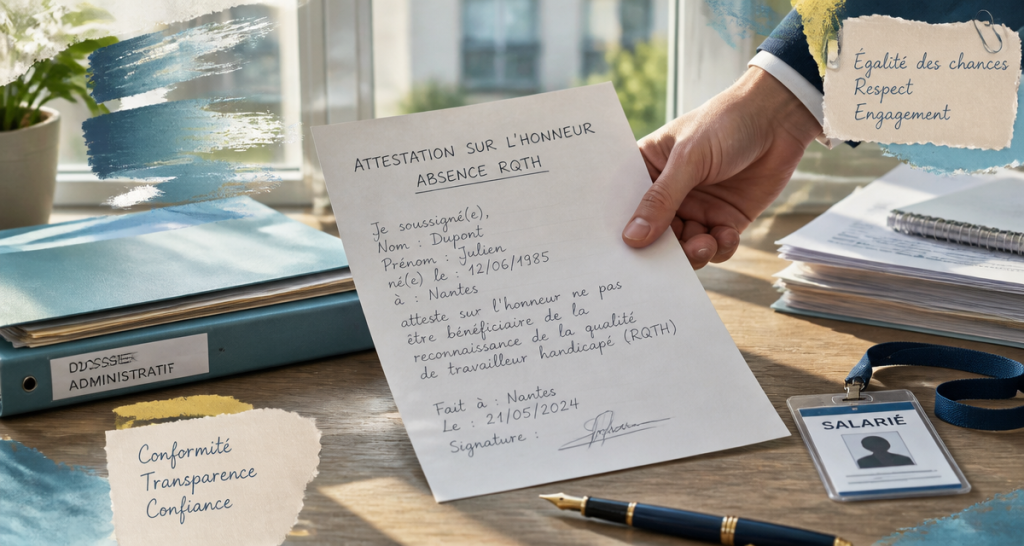 ATTESTATION SUR L'HONNEUR
ABSENCE RQTH
Je soussigné(e),
Nom : Dupont
Prénom : Julien
né(e) le : 12/06/1985
à : Nantes
atteste sur l'honneur ne pas
être bénéficiaire de la
reconnaissance de la qualité
de travailleur handicapé (RQTH)
Fait à : Nantes
Le : 21/05/2024
Signature :
Égalité des chances
Respect
Engagement
ADMINISTRATIF
Conformité
Transparence
Confiance
SALARIÉ